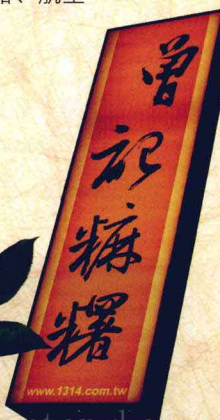 曾記麻糬
www.1314.com.tw